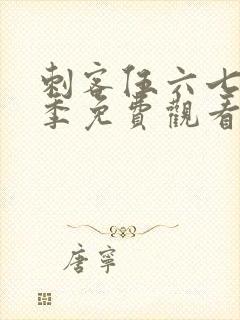 刺客伍六七
季免費觀看
唐寧